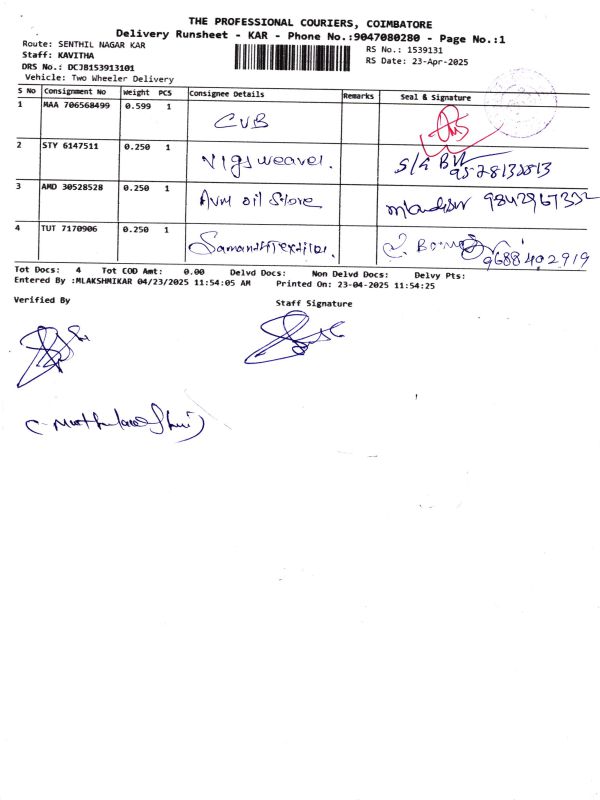 THE PROFESSIONAL COURIERS, COIMBATORE
Delivery Runsheet - KAR - Phone No.:9047080280 - Page No.:1
Route: SENTHIL NAGAR KAR
RS No.: 1539131
Staff: KAVITHA
RS Date: 23-Apr-2025
DRS No.: DCJ8153913101
Vehicle: Two Wheeler Delivery
S No Consignment No Weight PCS Consignee Details Remarks Seal & Signature
1 MAA 706568499 0.599 1 CUB
2 STY 6147511 0.250 1 Vigs weaver.
3 AMD 30528528 0.250 1 Avm oil Store
4 TUT 7170906 0.250 1 Samandhi Textiles. 9688402919
Tot Docs: 4 Tot COD Amt: 0.00 Delvd Docs: Non Delvd Docs: Delvy Pts:
Entered By :MLAKSHMIKAR 04/23/2025 11:54:05 AM Printed On: 23-04-2025 11:54:25
Verified By
Staff Signature